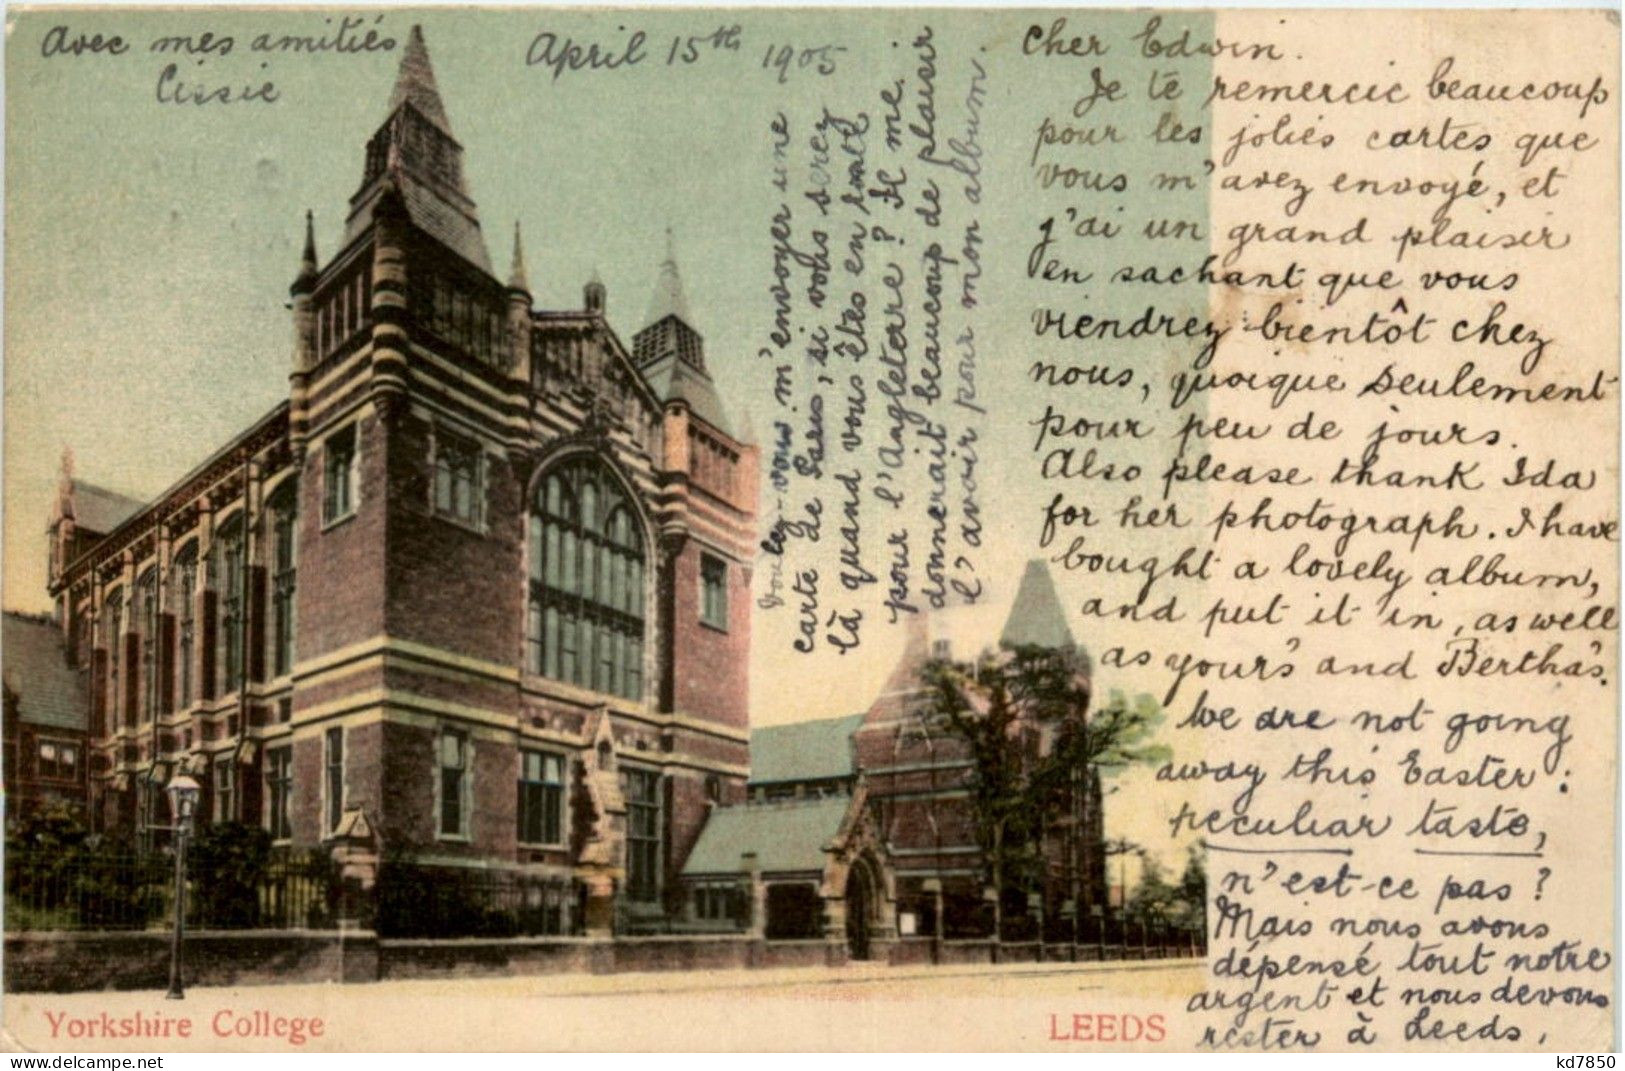 Avec mes amitiés
Cissie
April 15th 1905
Cher Edwin.
Je te remercie beaucoup
pour les jolies cartes que
vous m'avez envoyé, et
j'ai un grand plaisir
en sachant que vous
viendrez bientôt chez
nous, quoique seulement
pour peu de jours.
Also please thank Ida
for her photograph. I have
bought a lovely album,
and put it in, as well
as your's and Bertha's.
We are not going
away this Easter:
peculiar taste,
n'est-ce pas?
Mais nous avons
dépensé tout notre
argent et nous devons
rester à Leeds,
voulez-vous m'envoyer une
carte de Paris, si vous serez
là quand vous êtes en
pour l'Angleterre? Il me
donnerait beaucoup de plaisir
l'avoir pour mon album.
Yorkshire College
LEEDS
kd7850